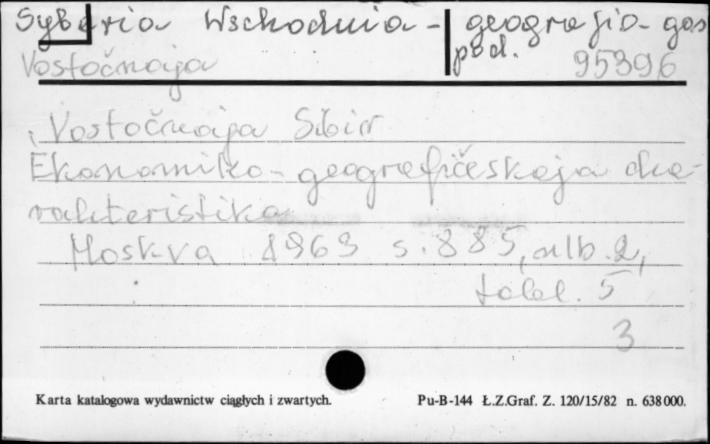 Syberia Wschodnia - geografia gos
pod.
Vostočnaja 95396
Vostočnaja Sibir
Ekonomiko-geografičeskaja cha-
rakteristika
Moskva 1963 s. 885, alb. 2,
tabl. 5
3
Karta katalogowa wydawnictw ciągłych i zwartych. Pu-B-144 Ł.Z.Graf. Z. 120/15/82 n. 638000.